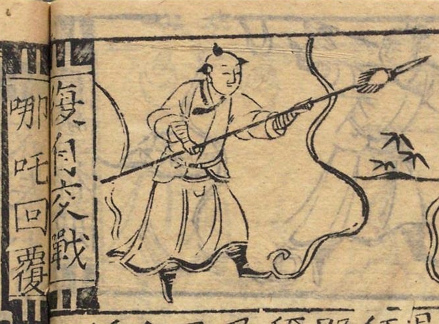 復自交戰
哪吒回覆